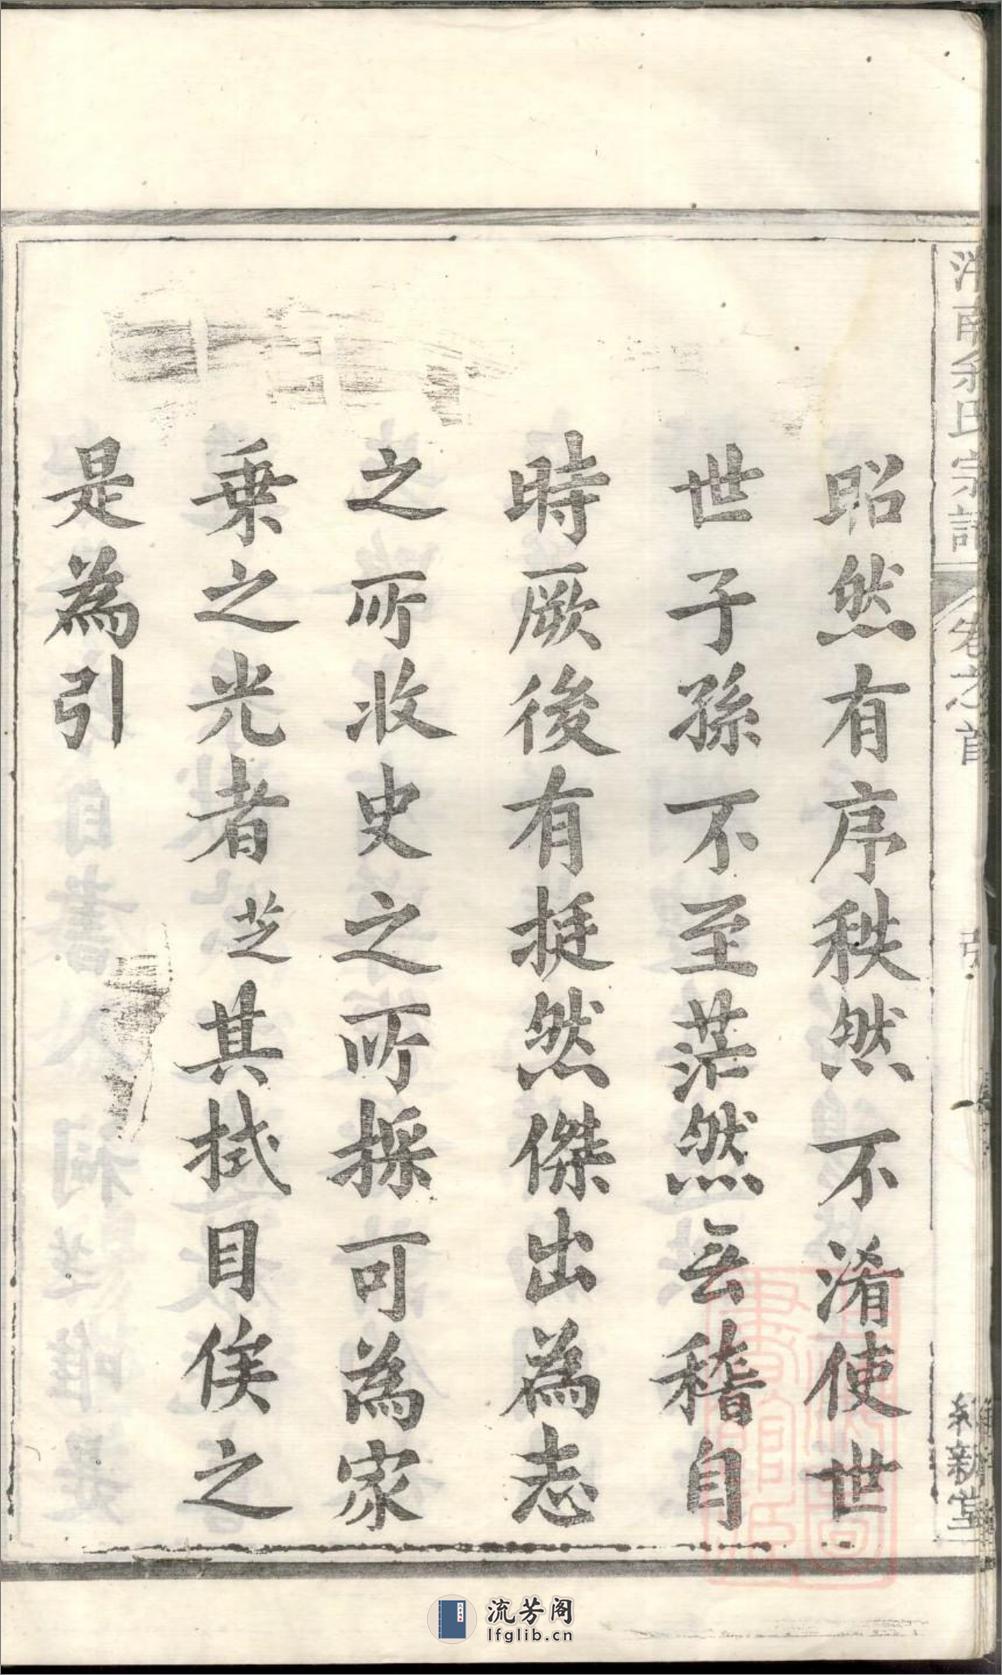 昭然有序秩然不淆使世
世子孫不至茫然無稽自
時厥後有挺然傑出為志
之所收史之所採可為家
乗之光者芝其拭目俟之
是為引
南余氏宗譜
卷之首
引
一
新堂
流芳阁
lfglib.cn